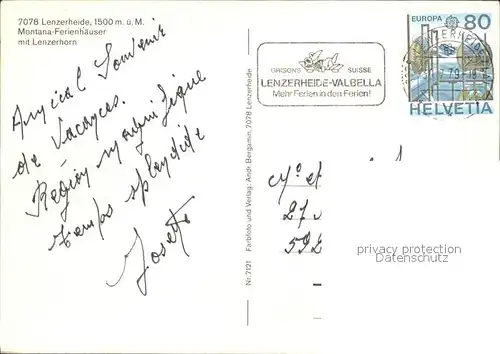 7078 Lenzerheide, 1500 m. ü. M.
Montana-Ferienhäuser
mit Lenzerhorn
Amical Souvenir
de Vacances.
Région magnifique
temps splendide
Josette
Nr. 7121 Farbfoto und Verlag: Andr. Bergamin, 7078 Lenzerheide
GRISONS SUISSE
LENZERHEIDE-VALBELLA
Mehr Ferien in den Ferien!
EUROPA 80
HELVETIA
LENZERHEIDE
79
Mo et
27
592
privacy protection